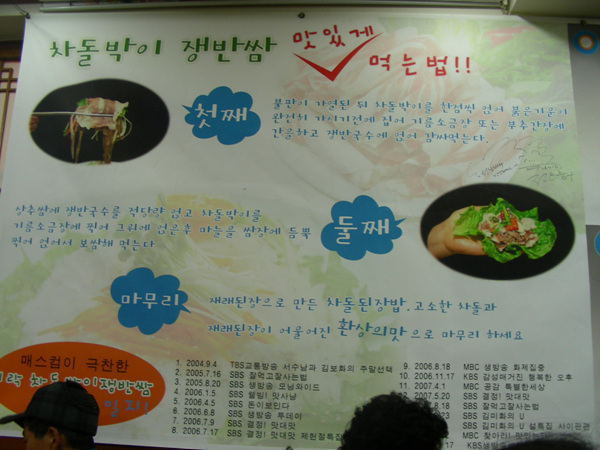 차돌박이 쟁반쌈 맛있게
먹는법!!
첫째
불판이 가열된 뒤 차돌박이를 한점씩 얹어 붉은기운이
완전히 가시기전에 집어 기름소금장 또는 부추간장에
간을하고 쟁반국수에 얹어 감싸먹는다.
상추쌈에 쟁반국수를 적당량 얹고 차돌박이를
기름소금장에 찍어 그위에 얹은후 마늘을 쌈장에 듬뿍
찍어 얹어서 보쌈해 먹는다
둘째
마무리
재래된장으로 만든 차돌된장밥. 고소한 차돌과
재래된장이 어울어진 환상의맛으로 마무리 하세요
매스컴이 극찬한
차돌박이쟁반쌈
일지!!
1. 2004.9.4 TBS교통방송 서수남과 김보화의 주말선택
2. 2005.7.16 SBS 잘먹고잘사는법
3. 2005.8.20 SBS 생방송 모닝와이드
4. 2006.1.5 SBS 웰빙! 맛사냥
5. 2006.4.5 SBS 돈이보인다
6. 2006.6.8 SBS 생방송 투데이
7. 2006.7.9 SBS 결정! 맛대맛
8. 2006.7.17 SBS 결정! 맛대맛 제헌절특집
9. 2006.8.18 MBC 생방송 화제집중
10. 2006.11.17 KBS 감성매거진 행복한 오후
11. 2007.4.1 MBC 공감 특별한세상
12. 2007.5.20 SBS 결정! 맛대맛
SBS 잘먹고잘사는법
SBS 김미화의 U
SBS 김미화의 U 설특집 사이판편
MBC 찾아라! 맛있는
KBS생방송